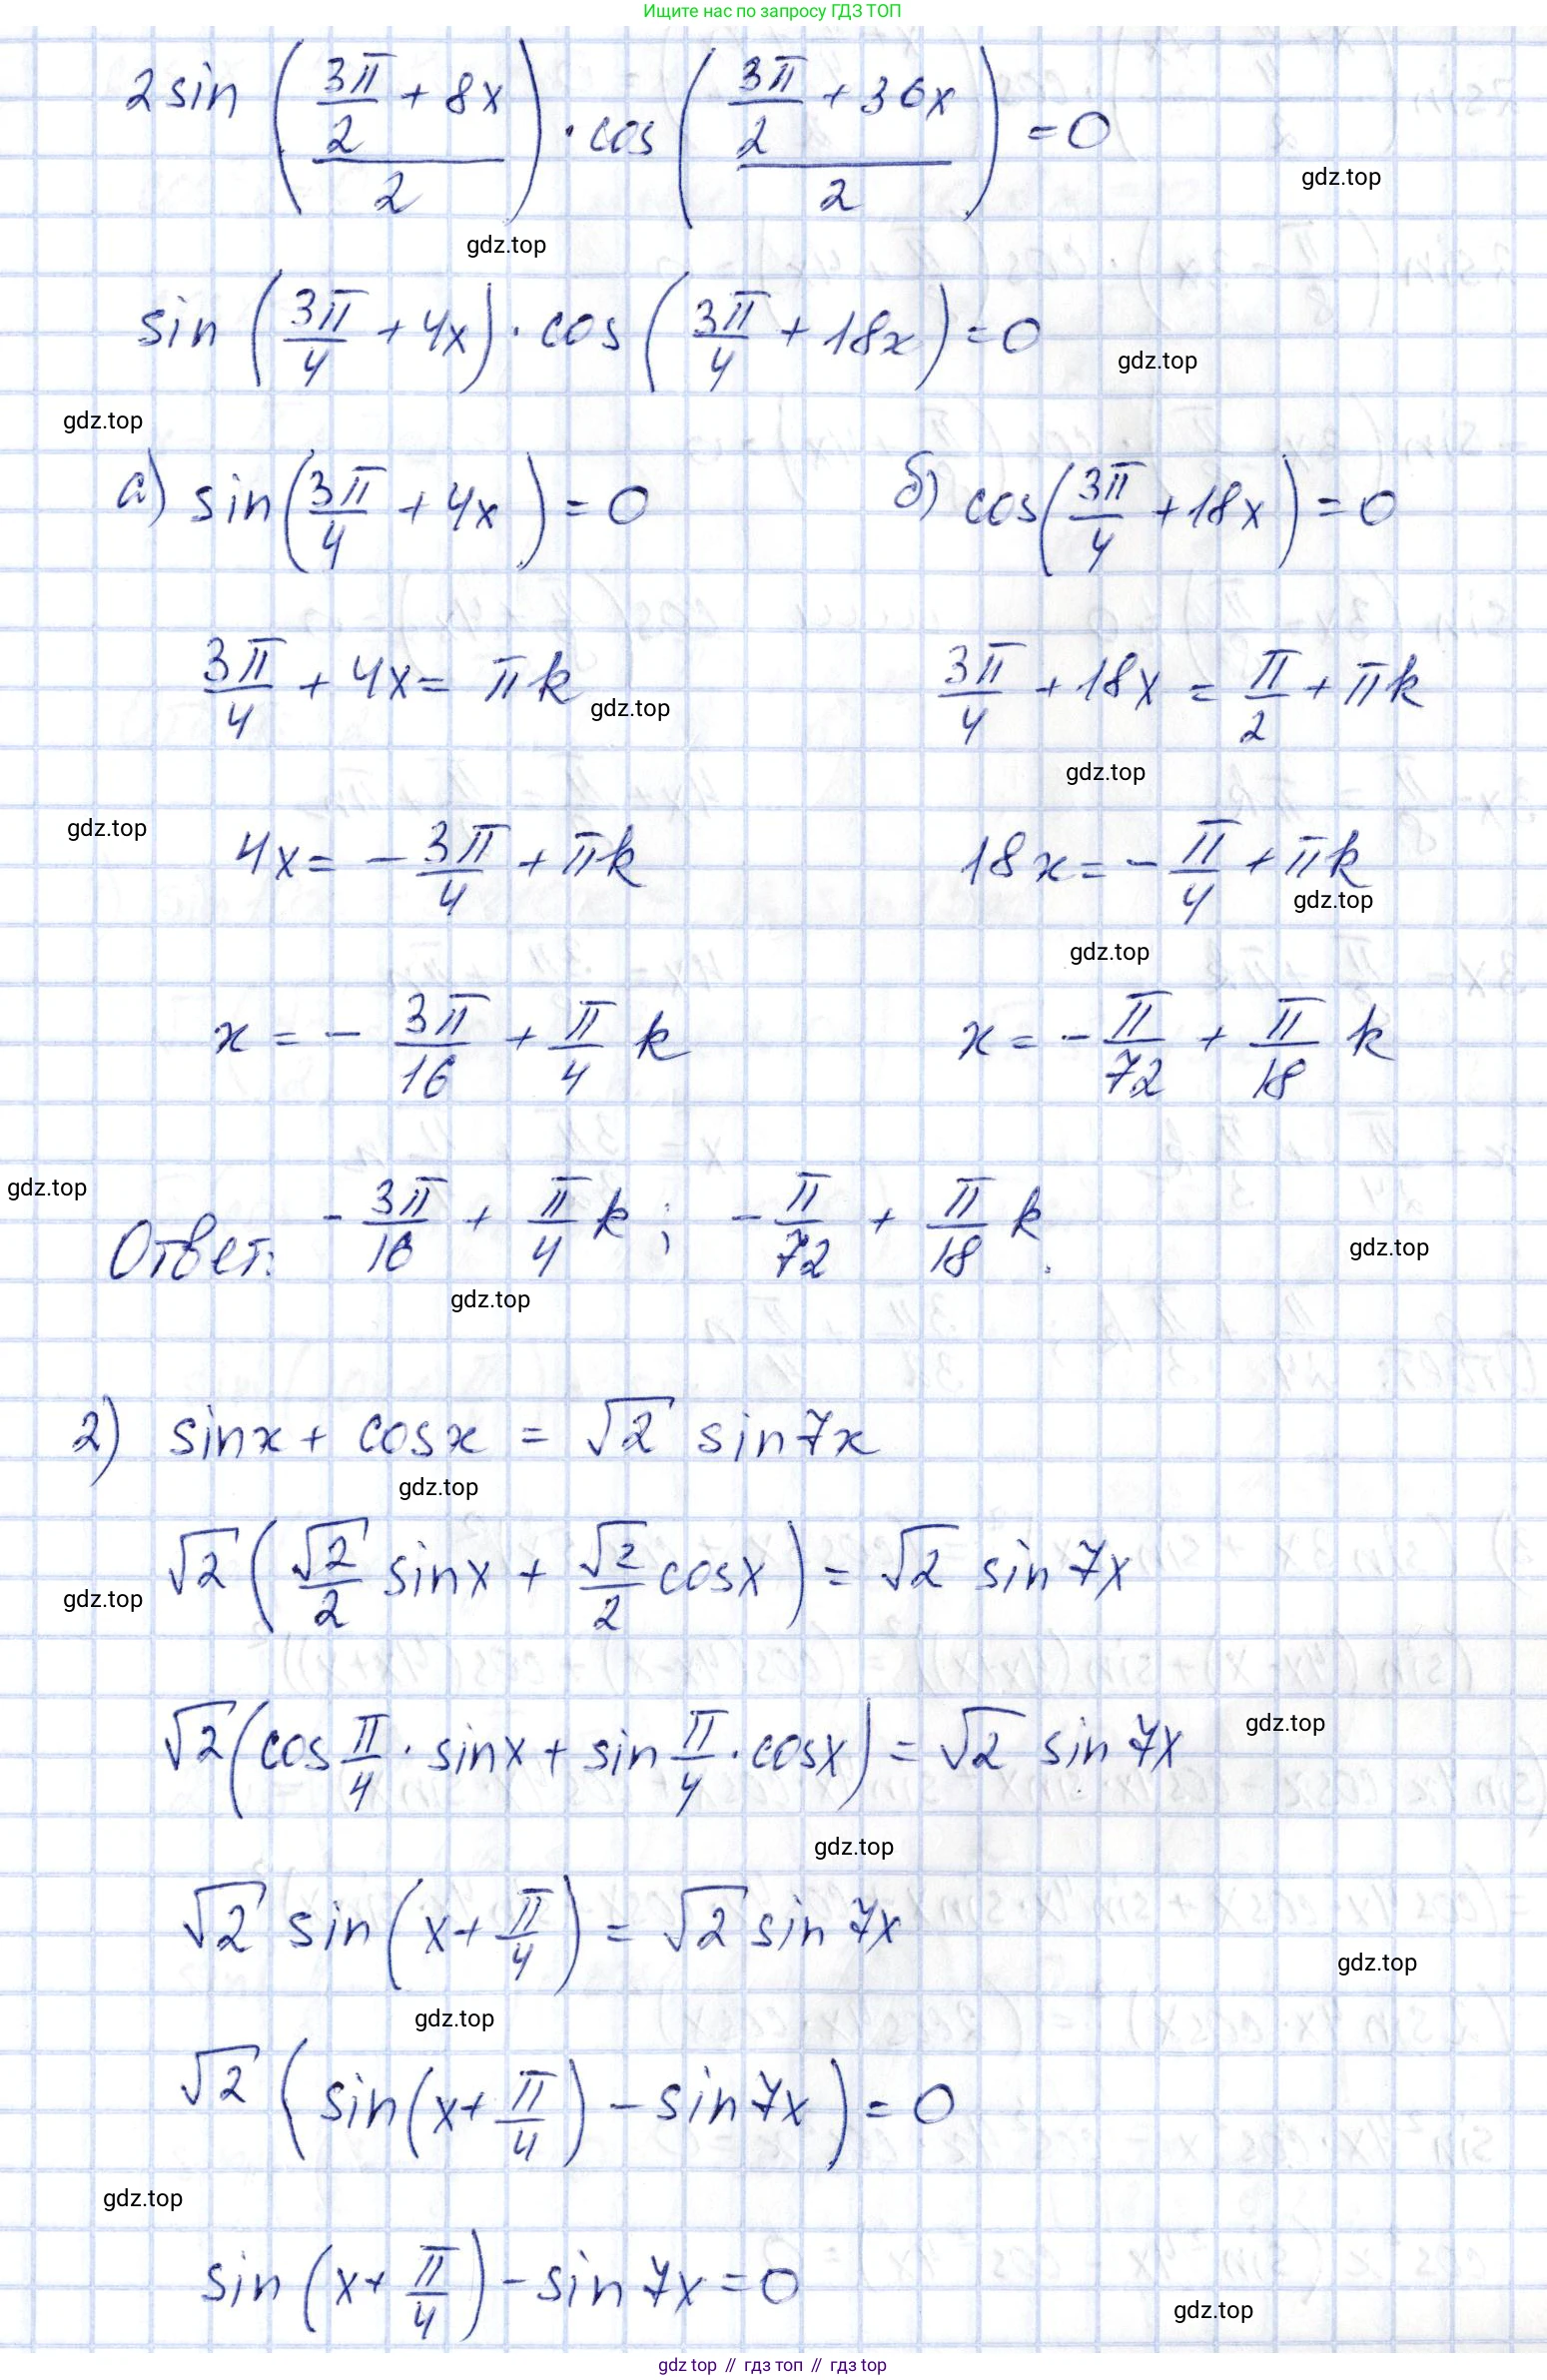 Ищите нас по запросу ГДЗ ТОП
2 sin ((3π/2 + 8x)/2) · cos ((3π/2 + 36x)/2) = 0
gdz.top
gdz.top
sin (3π/4 + 4x) · cos (3π/4 + 18x) = 0
gdz.top
gdz.top
а) sin (3π/4 + 4x) = 0
б) cos (3π/4 + 18x) = 0
3π/4 + 4x = πk
gdz.top
3π/4 + 18x = π/2 + πk
gdz.top
gdz.top
4x = - 3π/4 + πk
18x = - π/4 + πk
gdz.top
gdz.top
x = - 3π/16 + π/4 k
x = - π/72 + π/18 k
gdz.top
Ответ: - 3π/16 + π/4 k ; - π/72 + π/18 k.
gdz.top
gdz.top
2) sinx + cosx = √2 sin7x
gdz.top
√2 (√2/2 sinx + √2/2 cosx) = √2 sin 7x
gdz.top
√2 (cos π/4 · sinx + sin π/4 · cosx) = √2 sin 7x
gdz.top
gdz.top
√2 sin (x + π/4) = √2 sin 7x
gdz.top
gdz.top
√2 (sin (x + π/4) - sin 7x) = 0
gdz.top
sin (x + π/4) - sin 7x = 0
gdz.top
gdz top // гдз топ // гдз top